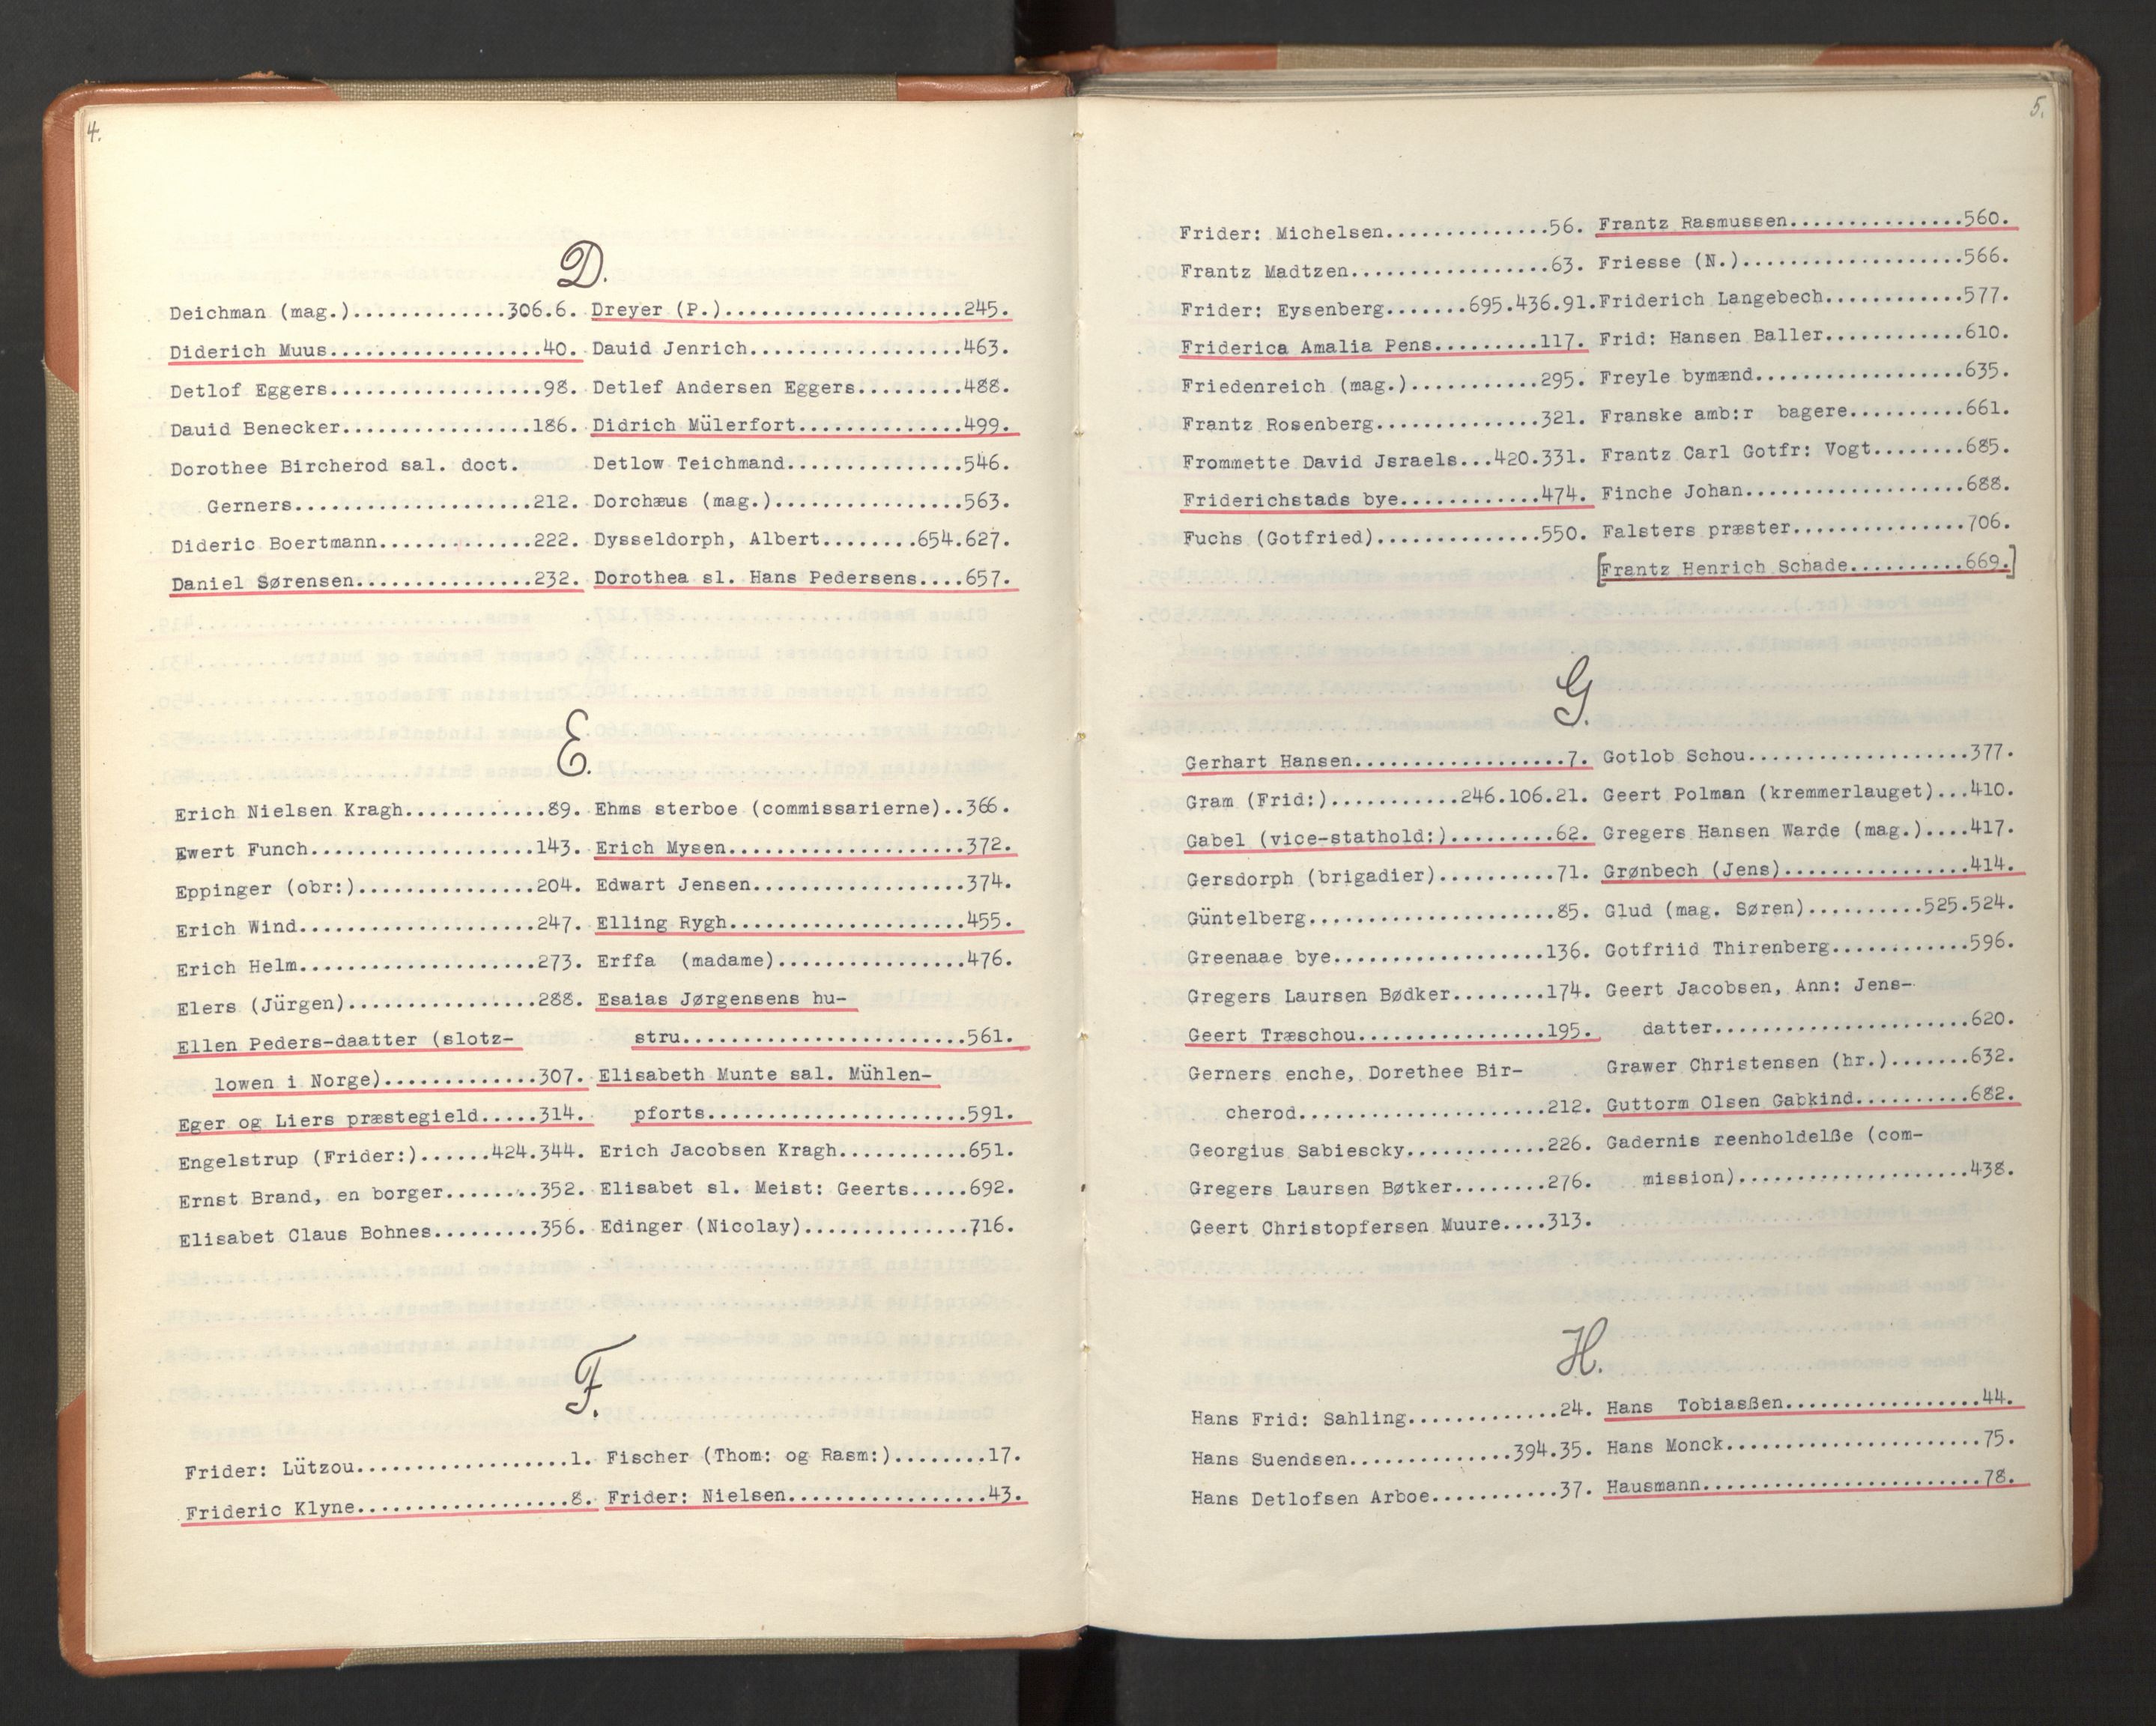 4.
D.
Deichman (mag.).............306.6.
Diderich Muus..................40.
Detlof Eggers..................98.
Dauid Benecker................186.
Dorothee Bircherod sal. doct.
Gerners....................212.
Dideric Boertmann.............222.
Daniel Sørensen...............232.
Dreyer (P.)....................245.
Dauid Jenrich..................463.
Detlef Andersen Eggers.........488.
Didrich Mülerfort..............499.
Detlow Teichmand...............546.
Dorchæus (mag.)................563.
Dysseldorph, Albert........654.627.
Dorothea sl. Hans Pedersens....657.
E.
Erich Nielsen Kragh............89.
Ewert Funch...................143.
Eppinger (obr:)...............204.
Erich Wind....................247.
Erich Helm....................273.
Elers (Jürgen)................288.
Ellen Peders-daatter (slotz-
lowen i Norge).............307.
Eger og Liers præstegield.....314.
Engelstrup (Frider:)......424.344.
Ernst Brand, en borger........352.
Elisabet Claus Bohnes.........356.
Ehms sterboe (commissarierne)..366.
Erich Mysen....................372.
Edwart Jensen..................374.
Elling Rygh....................455.
Erffa  (madame)................476.
Esaias Jørgensens hu-
stru........................561.
Elisabeth Munte sal. Mühlen-
pforts......................591.
Erich Jacobsen Kragh...........651.
Elisabet sl. Meist: Geerts.....692.
Edinger (Nicolay)..............716.
F.
Frider: Lützou..................1.
Frideric Klyne..................8.
Fischer (Thom: og Rasm:)........17.
Frider: Nielsen.................43.
5.
Frider: Michelsen..............56.
Frantz Madtzen.................63.
Frider: Eysenberg.......695.436.91.
Friderica Amalia Pens.........117.
Friedenreich (mag.)...........295.
Frantz Rosenberg..............321.
Frommette David Jsraels...420.331.
Friderichstads bye............474.
Fuchs (Gotfried)..............550.
Frantz Rasmussen...............560.
Friesse (N.)...................566.
Friderich Langebech............577.
Frid: Hansen Baller............610.
Freyle bymænd..................635.
Franske amb:r  bagere..........661.
Frantz Carl Gotfr: Vogt........685.
Finche Johan...................688.
Falsters præster...............706.
[Frantz Henrich Schade..........669.]
G.
Gerhart Hansen..................7.
Gram (Frid:)...........246.106.21.
Gabel (vice-stathold:).........62.
Gersdorph (brigadier)..........71.
Güntelberg.....................85.
Greenaae bye..................136.
Gregers Laursen Bødker........174.
Geert Træschou................195.
Gerners enche, Dorethee Bir-
cherod.....................212.
Georgius Sabiescky............226.
Gregers Laursen Bøtker........276.
Geert Christopfersen Muure....313.
Gotlob Schou...................377.
Geert Polman (kremmerlauget)...410.
Gregers Hansen Warde (mag.)....417.
Grønbech (Jens)................414.
Glud (mag. Søren)..........525.524.
Gotfriid Thirenberg............596.
Geert Jacobsen, Ann: Jens-
datter......................620.
Grawer Christensen (hr.).......632.
Guttorm Olsen Gabkind..........682.
Gadernis reenholdelße (com-
mission)....................438.
H.
Hans Frid: Sahling.............24.
Hans Suendsen..............394.35.
Hans Detlofsen Arboe...........37.
Hans  Tobiasßen.................44.
Hans Monck......................75.
Hausmann........................78.